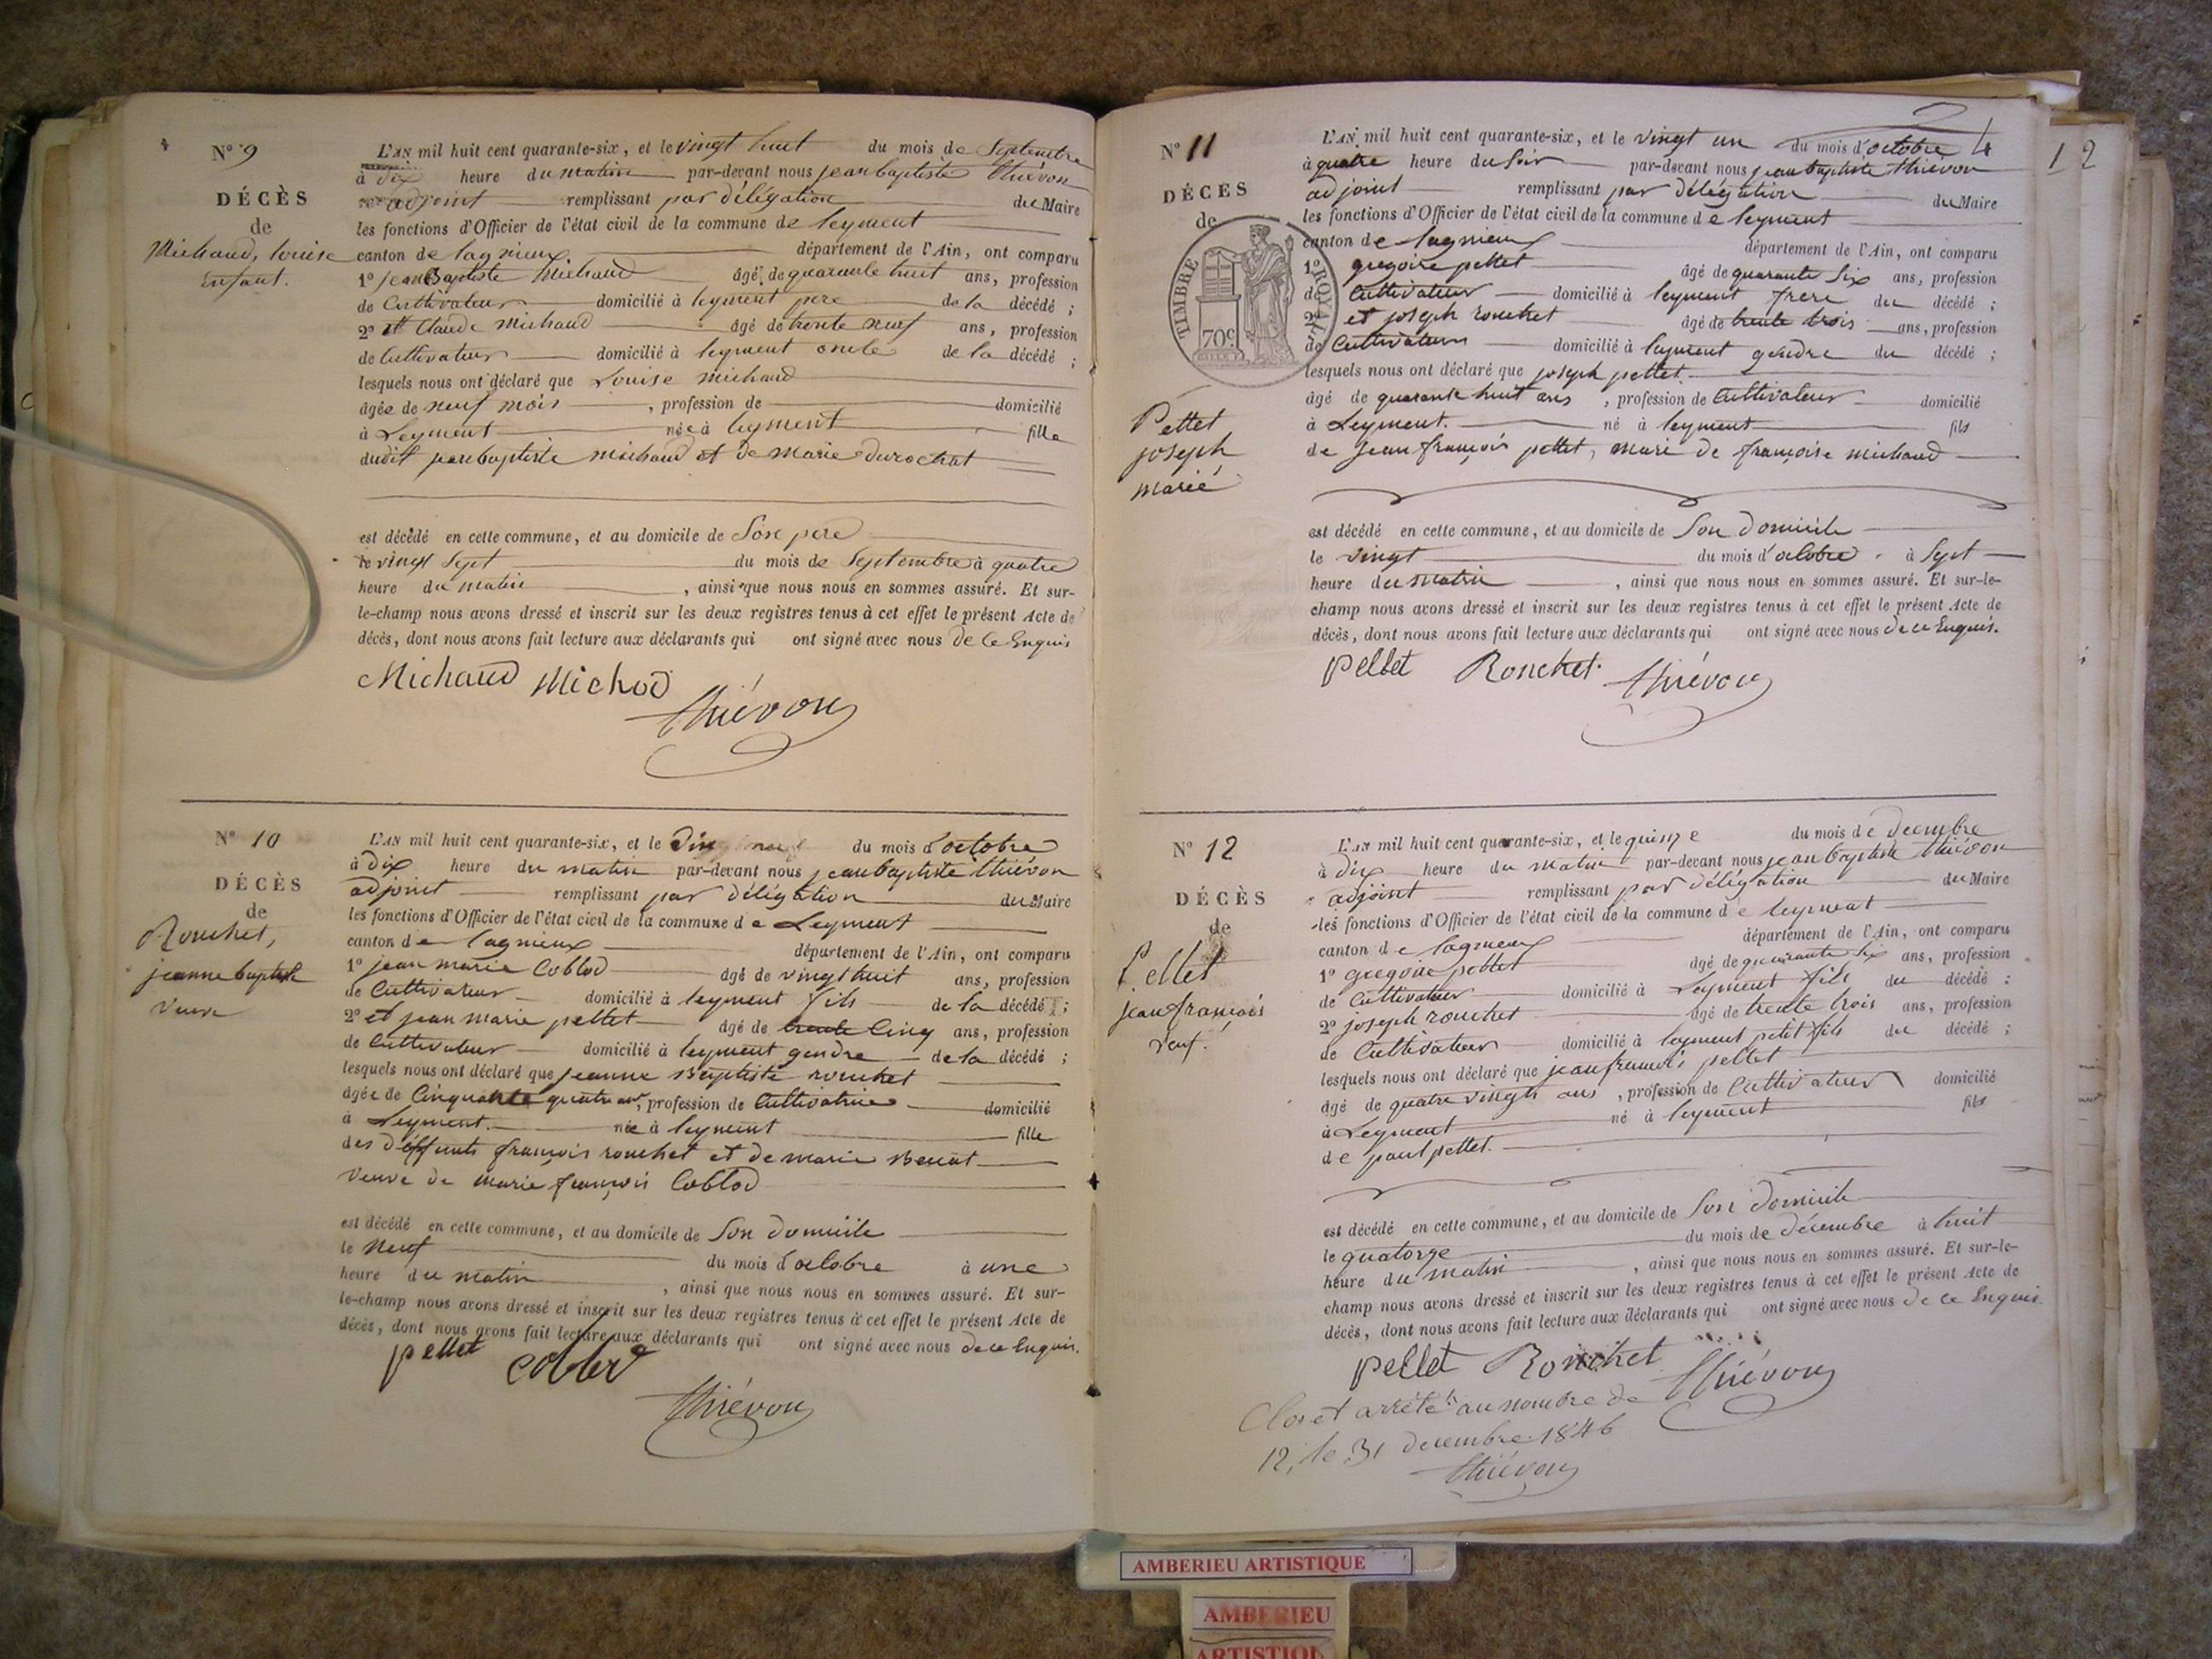 N° 9
DÉCÈS
de
Michaud, Louise
Enfant.
L'AN mil huit cent quarante-six, et le vingt huit du mois de Septembre
à dix heure du matin par-devant nous jean baptiste thiévon
adjoint remplissant par délégation du Maire
les fonctions d'Officier de l'état civil de la commune de leyment
canton de lagnieux département de l'Ain, ont comparu
1° jean Baptiste Michaud âgé de quarante huit ans, profession
de Cultivateur domicilié à leyment pere de la décédé ;
2° et Claude Michaud âgé de trente neuf ans, profession
de Cultivateur domicilié à leyment oncle de la décédé ;
lesquels nous ont déclaré que Louise michaud
âgée de neuf mois , profession de domicilié
à Leyment née à leyment fille
dudit jean baptiste michaud et de Marie durochat
est décédé en cette commune, et au domicile de Son pere
le vingt Sept du mois de Septembre à quatre
heure du matin , ainsi que nous nous en sommes assuré. Et sur-
le-champ nous avons dressé et inscrit sur les deux registres tenus à cet effet le présent Acte de
décès, dont nous avons fait lecture aux déclarants qui ont signé avec nous de ce Enquis
Michaud Michod
thiévon
N° 10
DÉCÈS
de
Rouchet,
jeanne baptiste
veuve
L'AN mil huit cent quarante-six, et le Dix neuf du mois d'octobre
à Dix heure du matin par-devant nous jean baptiste thiévon
adjoint remplissant par délégation du Maire
les fonctions d'Officier de l'état civil de la commune de Leyment
canton de lagnieux département de l'Ain, ont comparu
1° jean marie Coblod âgé de vingt huit ans, profession
de Cultivateur domicilié à leyment fils de la décédé ;
2° et jean marie pellet âgé de trente Cinq ans, profession
de Cultivateur domicilié à leyment gendre de la décédé ;
lesquels nous ont déclaré que jeanne Baptiste rouchet
âgée de Cinquante quatre ans, profession de Cultivatrice domicilié
à Leyment. née à leyment fille
des déffunts françois rouchet et de marie Benat
veuve de marie françois Coblod
est décédé en cette commune, et au domicile de Son domicile
le neuf du mois d'octobre à une
heure du matin , ainsi que nous nous en sommes assuré. Et sur-
le-champ nous avons dressé et inscrit sur les deux registres tenus à cet effet le présent Acte de
décès, dont nous avons fait lecture aux déclarants qui ont signé avec nous de ce Enquis.
pellet
thiévon
N° 11
DÉCÈS
de
TIMBRE ROYAL
70c
Pellet
joseph
marié
4
12
L'AN mil huit cent quarante-six, et le vingt un du mois d'octobre
à quatre heure du Soir par-devant nous jean baptiste thiévon
adjoint remplissant par délégation du Maire
les fonctions d'Officier de l'état civil de la commune de leyment
canton de lagnieux département de l'Ain, ont comparu
1° gregoire pellet âgé de quarante Six ans, profession
de Cultivateur domicilié à leyment frere du décédé ;
2° et joseph rouchet âgé de trente trois ans, profession
de Cultivateur domicilié à leyment gendre du décédé ;
lesquels nous ont déclaré que joseph pellet
âgé de quarante huit ans , profession de Cultivateur domicilié
à Leyment. né à leyment fils
de Jean françois pellet, mari de françoise michaud
est décédé en cette commune, et au domicile de Son domicile
le vingt du mois d'octobre à Sept
heure du matin , ainsi que nous nous en sommes assuré. Et sur-le-
champ nous avons dressé et inscrit sur les deux registres tenus à cet effet le présent Acte de
décès, dont nous avons fait lecture aux déclarants qui ont signé avec nous de ce Enquis.
pellet Rouchet. thiévon
N° 12
DÉCÈS
de
Pellet
jean françois
veuf.
L'AN mil huit cent quarante-six, et le quinze du mois de decembre
à dix heure du matin par-devant nous jean baptiste thiévon
adjoint remplissant par délégation du Maire
les fonctions d'Officier de l'état civil de la commune de leyment
canton de lagnieux département de l'Ain, ont comparu
1° gregoire pellet âgé de quarante six ans, profession
de Cultivateur domicilié à Leyment fils du décédé ;
2° joseph rouchet âgé de trente trois ans, profession
de Cultivateur domicilié à leyment petit fils du décédé ;
lesquels nous ont déclaré que jean françois pellet
âgé de quatre vingts ans , profession de Cultivateur domicilié
à Leyment né à leyment fils
de paul pellet.
est décédé en cette commune, et au domicile de Son domicile
le quatorze du mois de décembre à huit
heure du matin , ainsi que nous nous en sommes assuré. Et sur-le-
champ nous avons dressé et inscrit sur les deux registres tenus à cet effet le présent Acte de
décès, dont nous avons fait lecture aux déclarants qui ont signé avec nous de ce Enquis
pellet Rouchet thiévon
Clos et arrété au nombre de
12, le 31 decembre 1846
thiévon
AMBERIEU ARTISTIQUE
AMBERIEU
ARTISTIQU